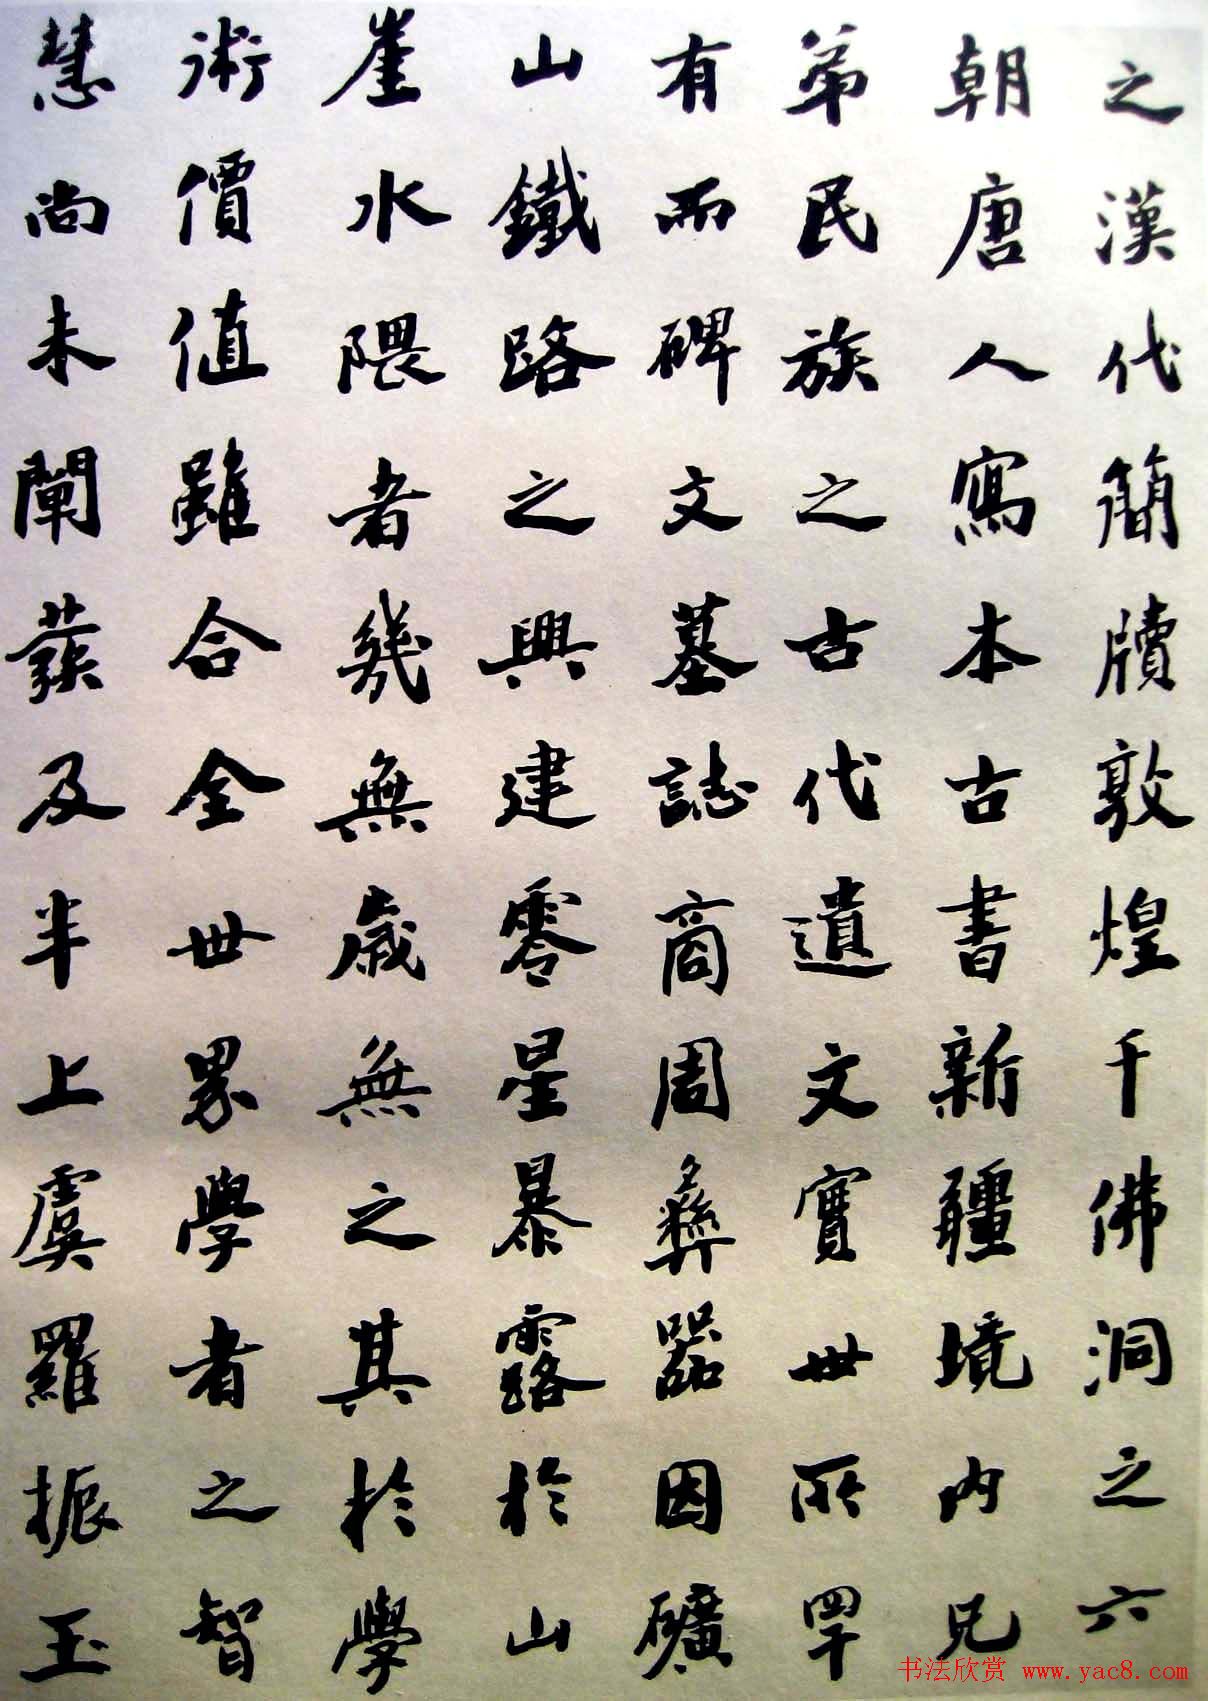 之漢代簡牘敦煌千佛洞之六
朝唐人寫本古書新疆境内兄
弟民族之古代遺文實世所罕
有而碑文墓誌商周彝器因礦
山鐵路之興建零星暴露於山
崖水隈者幾無歲無之其於學
術價值雖合全世界學者之智
慧尚未闡發及半上虞羅振玉
书法欣赏 www.yac8.com